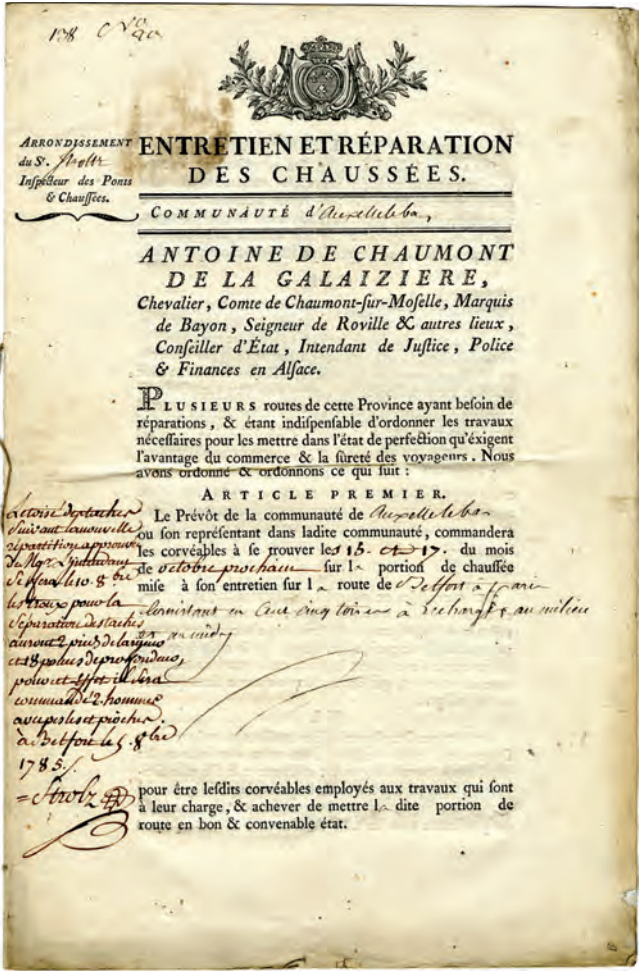 138 N.o
ARRONDISSEMENT
du S.r Strolz
Inspecteur des Ponts
& Chaussées.
ENTRETIEN ET RÉPARATION
DES CHAUSSÉES.
COMMUNAUTÉ d'Auxellebas,
ANTOINE DE CHAUMONT
DE LA GALAIZIERE,
Chevalier, Comte de Chaumont-sur-Moselle, Marquis
de Bayon, Seigneur de Roville & autres lieux,
Conseiller d'État, Intendant de Justice, Police
& Finances en Alsace.
PLUSIEURS routes de cette Province ayant besoin de
réparations, & étant indispensable d'ordonner les travaux
nécessaires pour les mettre dans l'état de perfection qu'éxigent
l'avantage du commerce & la sûreté des voyageurs. Nous
avons ordonné & ordonnons ce qui suit :
ARTICLE PREMIER.
Le Prévôt de la communauté de Auxellebas
ou son représentant dans ladite communauté, commandera
les corvéables à se trouver les 15. et 17. du mois
de octobre prochain sur la portion de chaussée
mise à son entretien sur la route de Belfort à paris
Consistant en Cent cinq toises à recharger au milieu
au midy
Le toisé des taches
suivant la nouvelle
répartition approuvée
de Mgr. L'jntendant
se fera le 10. 8.bre
les troux pour la
séparation des taches
auront 2 pieds de largeur
et 18 pouces de profondeur,
pour cet effet il sera
commandé 2. hommes
avec pesles et pioches.
à Belfort le 5. 8.bre
1785.
Strolz
pour être lesdits corvéables employés aux travaux qui sont
à leur charge, & achever de mettre la dite portion de
route en bon & convenable état.